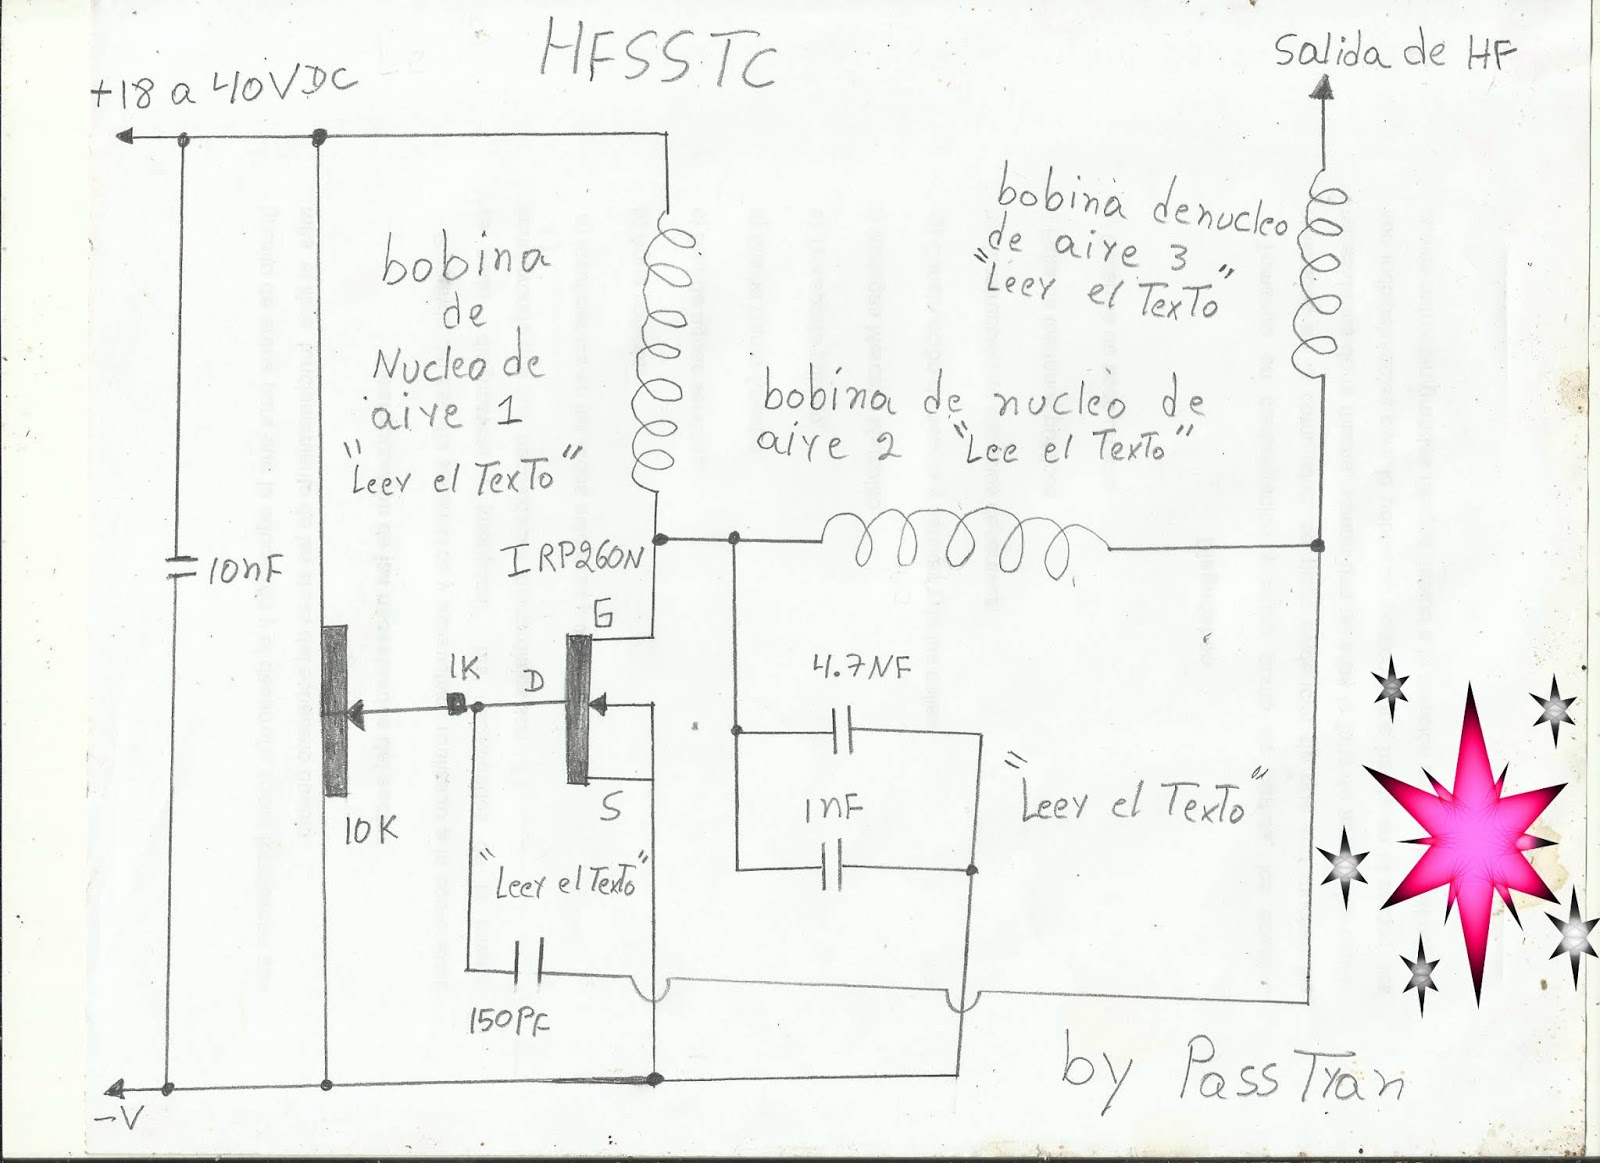 HFSSTC
+18 a 40VDC
Salida de HF
bobina denucleo
de aire 3
"Leer el TexTo"
bobina
de
Nucleo de
aire 1
"Leer el TexTo"
bobina de nucleo de
aire 2 "Lee el TexTo"
IRP260N
10nF
G
1K
D
4.7NF
S
10K
1nF
"Leer el TexTo"
"Leer el TexTo"
150PF
by PassTran
-V